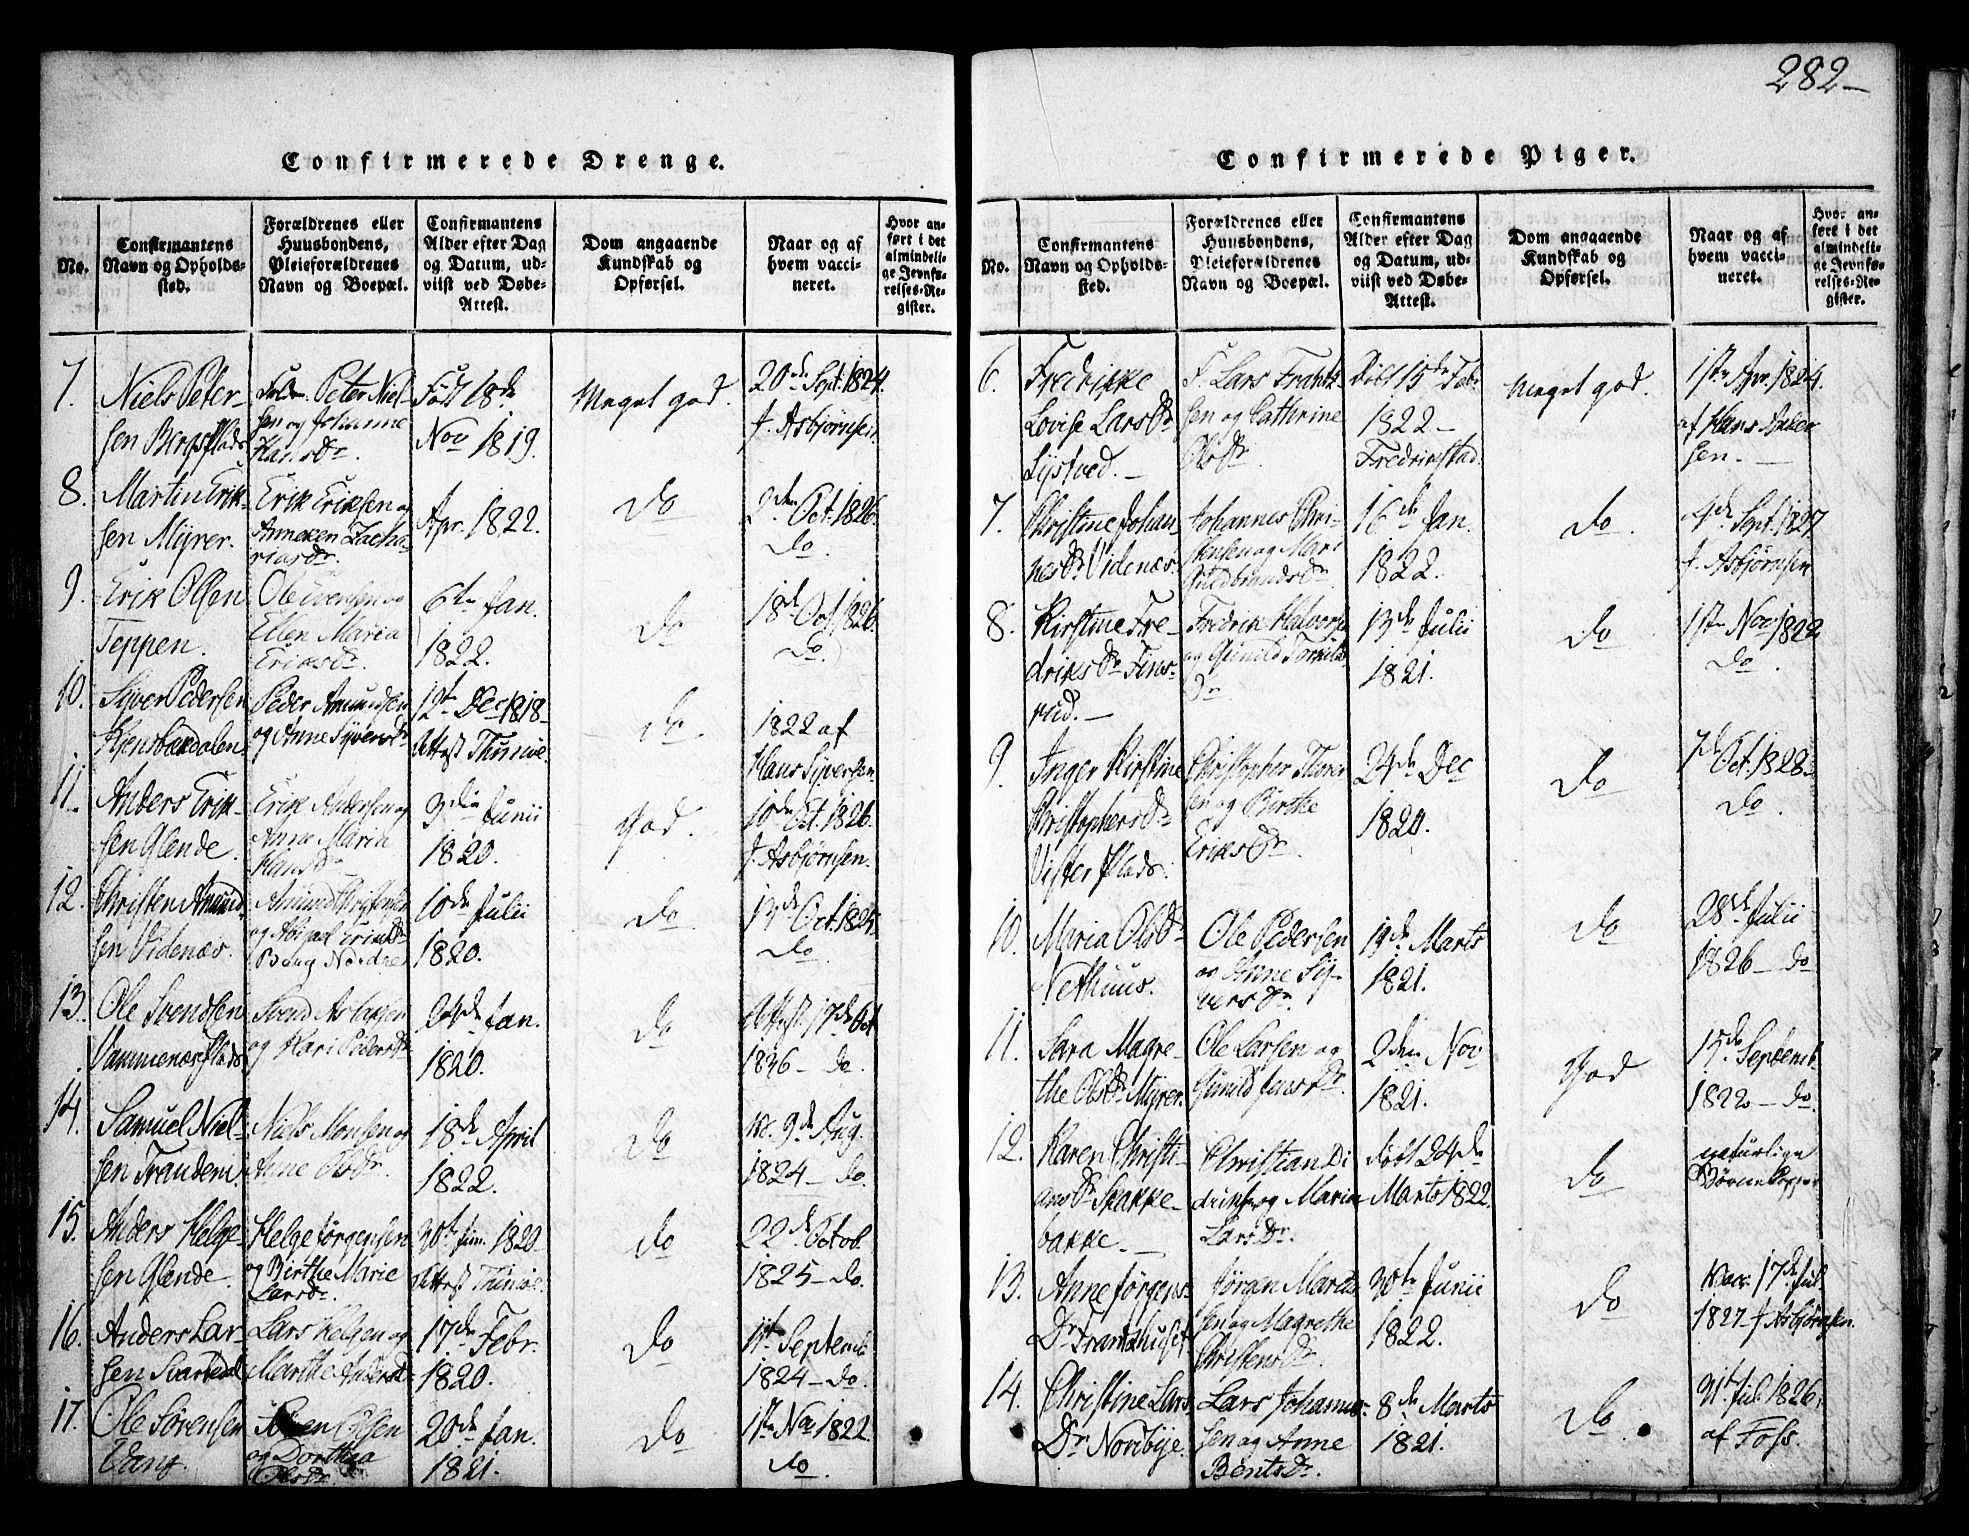 282-
Confirmerede Drenge.
No.
Confirmantens
Navn og Opholds-
sted.
Forældrenes eller
Huusbondens,
Pleieforældrenes
Navn og Boepæl.
Confirmantens
Alder efter Dag
og Datum, ud-
viist ved Døbe-
Attest.
Dom angaaende
Kundskab og
Opførsel.
Naar og af
hvem vacci-
neret.
Hvor an-
ført i det
almindeli-
ge Jevnfø-
relses-Re-
gister.
7.
Niels Peter-
sen Bergs Plads
Peter Niel-
sen og Johanne
HansDr.
Født 18de
Nov 1819.
Meget god.
20de Sept. 1824.
f. Asbjørnsen
8.
Martin Erik-
sen Myrer.
Erik Eriksen og
Anneken Zacha-
riasDr.
Apr. 1822.
Do
Oct. 1826.
Do.
9.
Erik Olsen
Teppen.
Ole Evensen og
Ellen Maria
EriksDr.
6te Jan.
1822.
Do
18de Oct 1826.
Do.
10.
Syver Pedersen
Kjensbækdalen.
Peder Amundsen
og Anne SyversDr
12te Dec 1818-
Attest Thunøe.
Do.
1822 af
Hans Syversen
11.
Anders Erik-
sen Glende.
Erik Andersen og
Anne Maria
HansDr
3die Junii
1820.
God.
10de Oct. 1826.
f. Asbjørnsen.
12.
Christen Amund-
sen Videnæs.
Amund Christensen
og Abigael EriksDr
Berg Nordre
10de Julii
1820.
Do.
13de Oct. 1825.
Do.
13.
Ole Svendsen
Vammenæs Plads
Svend Aslaksen
og Kari PedersDr
24de Jan.
1820.
Do
Attest. 17de Oct
1836- do.
14.
Samuel Niel-
sen Trandem.
Niels Monsen og
Anne OlsDr.
18de April
1822.
Do
9de Aug.
1824- do.
15.
Anders Helge-
sen Glende.
Helge Jørgensen
og Birthe Marie
LarsDr.
30te Jun. 1820
Attest Thunøe.
Do
22de Octob
1825- do.
16.
Anders Lar-
sen Svartedal
Lars Helgesen og
Marthe AndersDr
17de Febr.
1820.
Do
11te Septemb
1824- do.
17.
Ole Sørensen
Vang.
Søren Olsen
og Dorthea
OlsDr.
20de Jan.
1821.
Do
1ste Nov 1822.
do.
Confirmerede Piger.
No.
Confirmantens
Navn og Opholds-
sted.
Forældrenes eller
Huusbondens,
Pleieforældrenes
Navn og Boepæl.
Confirmantens
Alder efter Dag
og Datum, ud-
viist ved Døbe-
Attest.
Dom angaaende
Kundskab og
Opførsel.
Naar og af
hvem vacci-
neret.
Hvor an-
ført i det
almindeli-
ge Jevnfø-
relses-Re-
gister.
6.
Fredrikke
Lovise LarsDr
Lysthved.-
F. Lars Frantz-
sen og Cathrine
OlsDr.
Døbt 15de Febr
1822-
Fredrikstad.
Meget god.
1ste Apr. 1824.
af Hans Ander
sen.-
7.
Christine Johan-
nesDr Videnæs.
Johannes Chri-
stensen og Mari
GuldbrandsDr.
16de Jan.
1822.
Do.
4de Sept. 1827
f. Asbjørnsen
8.
Kirstine Fre-
driksDr Fins-
rud.-
Fredrik Halvorsen
og Gunild
Dr
13de Julii
1821.
Do
1ste Nov 1822
Do.
9.
Inger Kirstine
ChristophersDr
Vister Plads.
Christopher Thore-
sen og Birthe
EriksDr.
24de Dec
1820.
Do
7de Oct. 1828-
Do.
10.
Maria OlsDr
Nethuus.
Ole Pedersen
og Anne Sy-
versDr.
13de Marts
1821.
Do
28de Julii
1826- do
11.
Sara Magre-
the OlsDr Myrer.
Ole Larsen og
Gunild JensDr.
2den Nov
1821.
God
15de Septemb
1822- do.
12.
Karen Christi-
ansDr Skakke-
bakke.-
Christian Di
driksen og Maria
LarsDr.
Født 24de
Marts 1822.
Do
naturlige
Børnekopper
13.
Anne Jørgens-
Dr Trantzhuset
Jørgen
sen og Magrethe
ChristensDr.
30te Junii
1822.
Do
Vacc. 17de Jul
1827 f Asbjørnsen.
14.
Christine Lars
Dr. Nordbye.
Lars Johannes-
sen og Anne
BentsDr.
8de Marts
1821.
Do.
31te Jul. 1826.
af Foss.